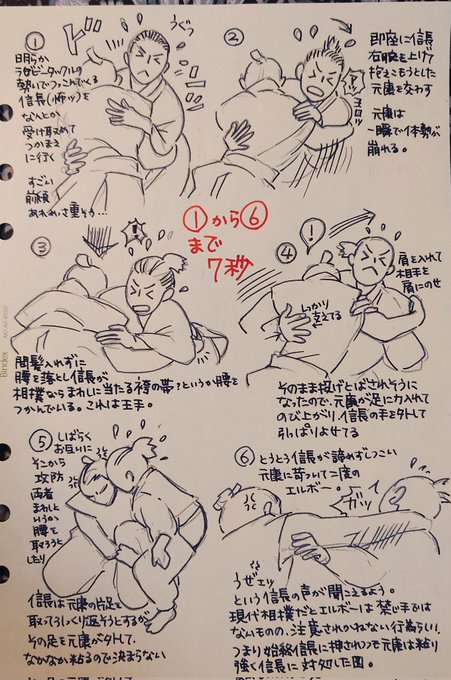 ①
ドズ
うぐっ
明らか
ラグビータックルの
勢いでつっこんでくる
信長(怖ッ)を
なんとか
受け取めて
つかまえ
に行く
すごい
前傾
あれいい重そう…
②
即座に信長
右腕を上げて
捉えこもうとした
元康を交わす
元康は
一瞬で体勢が
崩れる。
ヨロッ
①から⑥
まで
7秒
③
!
間髪入れずに
腰を落とし信長が
相撲ならまわしに当たる袴の帯?というか腰を
つかんでいる。これは王手。
④
!
肩を入れて
相手を
肩にのせ
しっかり
支えてる
そのまま投げとばされそうに
なったので、元康が足に力入れて
のび上がり、信長の手を外して
引っぱりよせてる
⑤
しばらく
お互いに
そこから
攻防
両者
まわしと
いうか
腰を
取ろうと
したり
信長は元康の片足を
取ってひっくり返そうとするが
その足を元康が外して、
なかなか粘るので決まらない
⑥
とうとう信長が諦めずしつこい
元康に苛ついて二度の
エルボー。
ガッ
うぜェッ
という信長の声が聞こえるよう。
現代相撲だとエルボーは禁じ手では
ないものの、注意されかねない行為らしい。
つまり始終信長に押されつつも元康は粘り
強く信長に対処した図。
Bindex